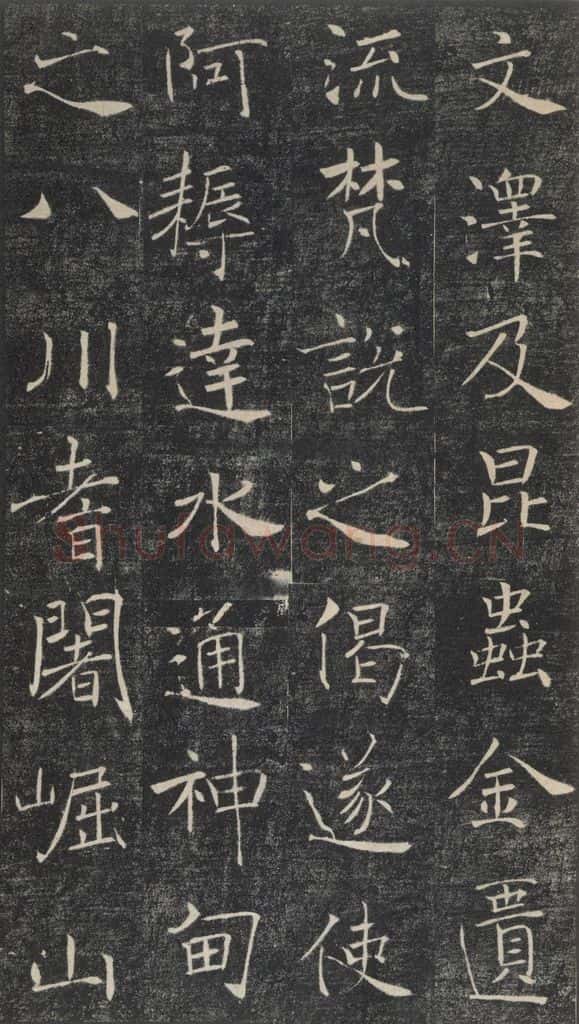 文澤及昆蟲金匱
流梵說之偈遂使
阿耨達水通神甸
之八川耆闍崛山
Shufawang.CN